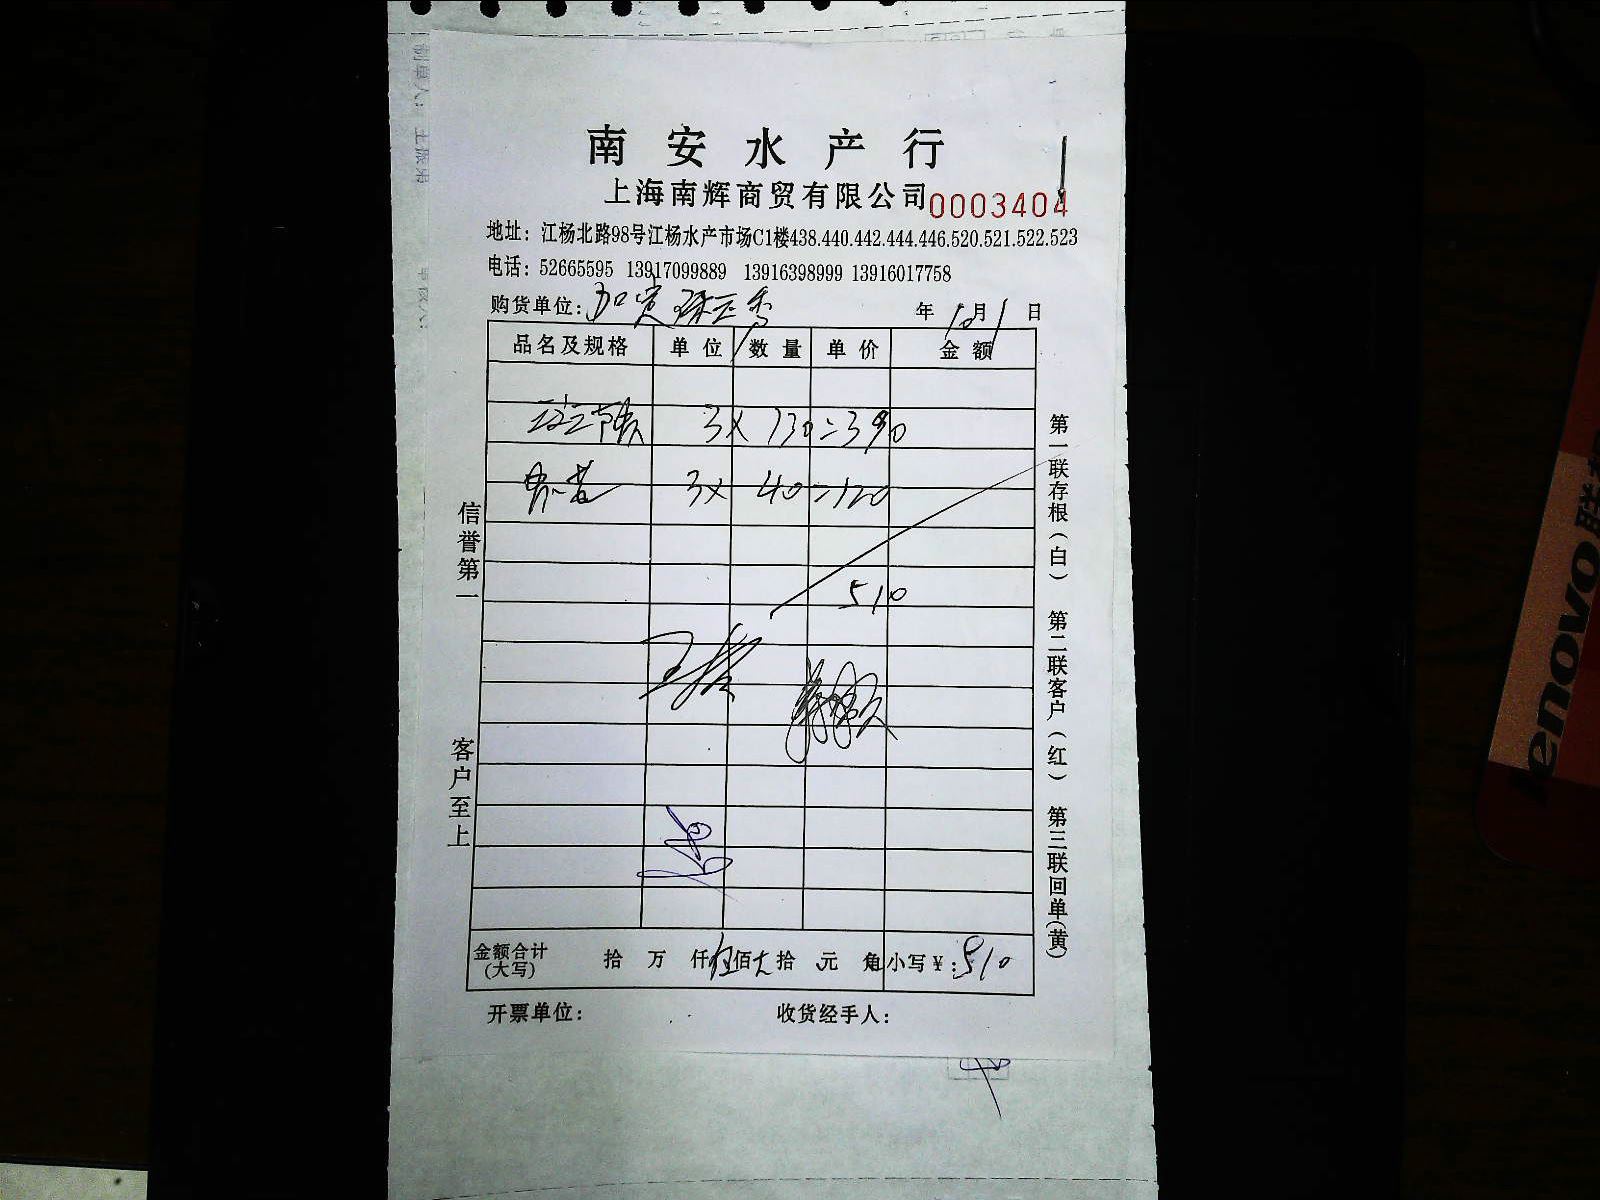 南安水产行
上海南辉商贸有限公司 0003404
地址：江杨北路98号江杨水产市场C1楼438.440.442.444.446.520.521.522.523
电话：52665595 13917099889 13916398999 13916017758
购货单位：加贺 年10月1日
品名及规格 单位 数量 单价 金额
3x 130=390
3x 40=120
510
金额合计(大写) 拾 万 仟伍佰 拾 元 角 小写￥:510
开票单位： 收货经手人：
信誉第一
客户至上
第一联存根(白) 第二联客户(红) 第三联回单(黄)
制单人：
lenovo